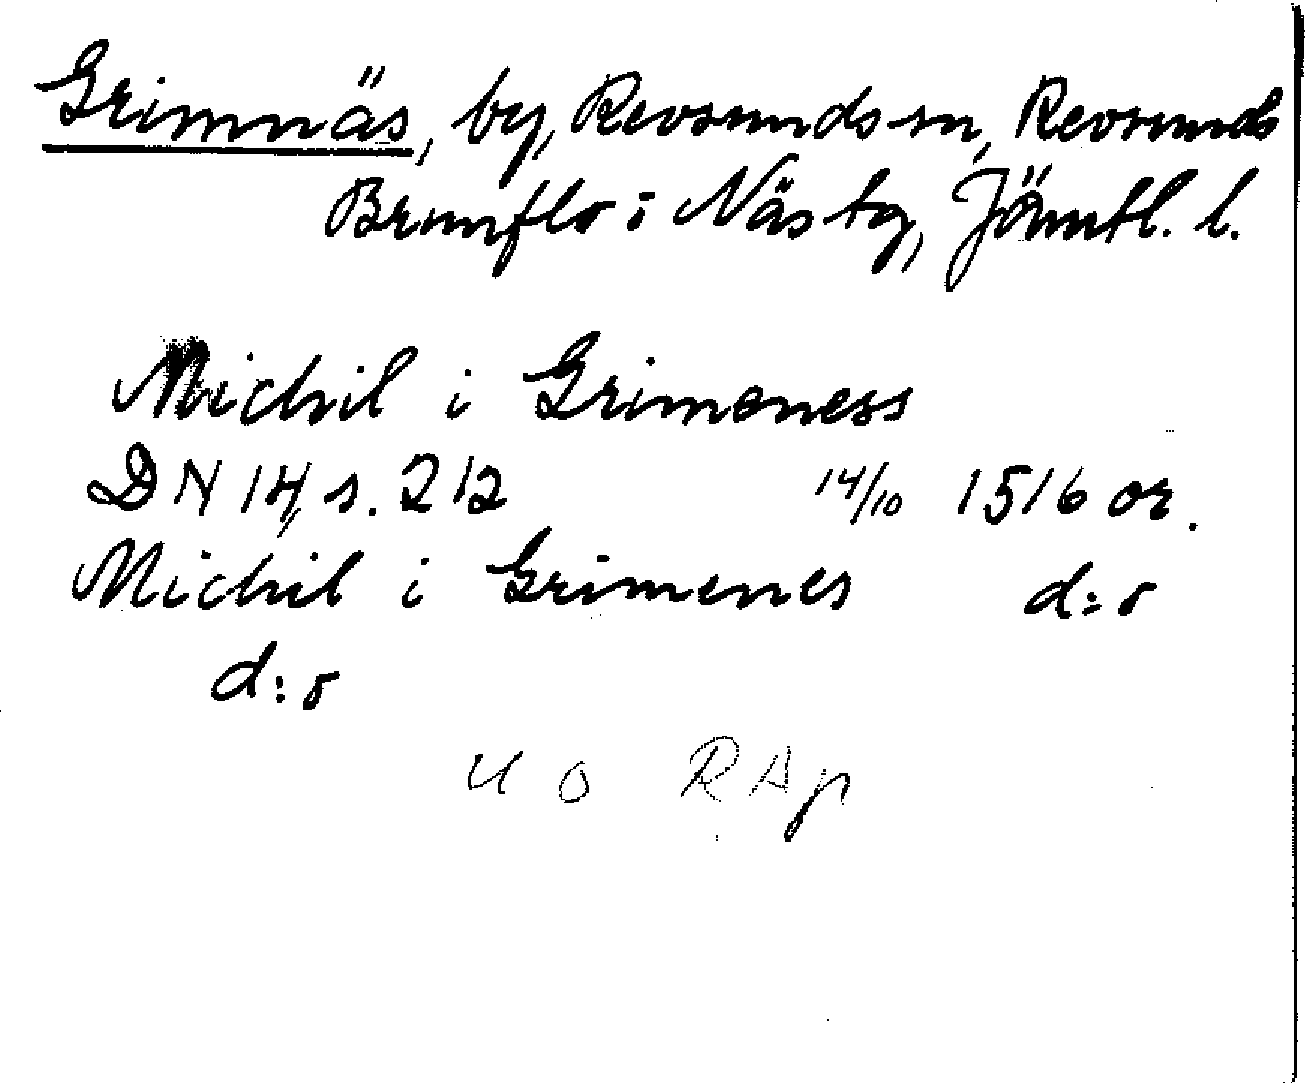 Grimnäs, by, Revsunds sn, Revsunds
Brunflo i Näs tg, Jämtl. l.
Michil i Grimaness
DN 14, s. 212 14/10 1516 or.
Michil i Grimenes d:o
d:o
u o RAp